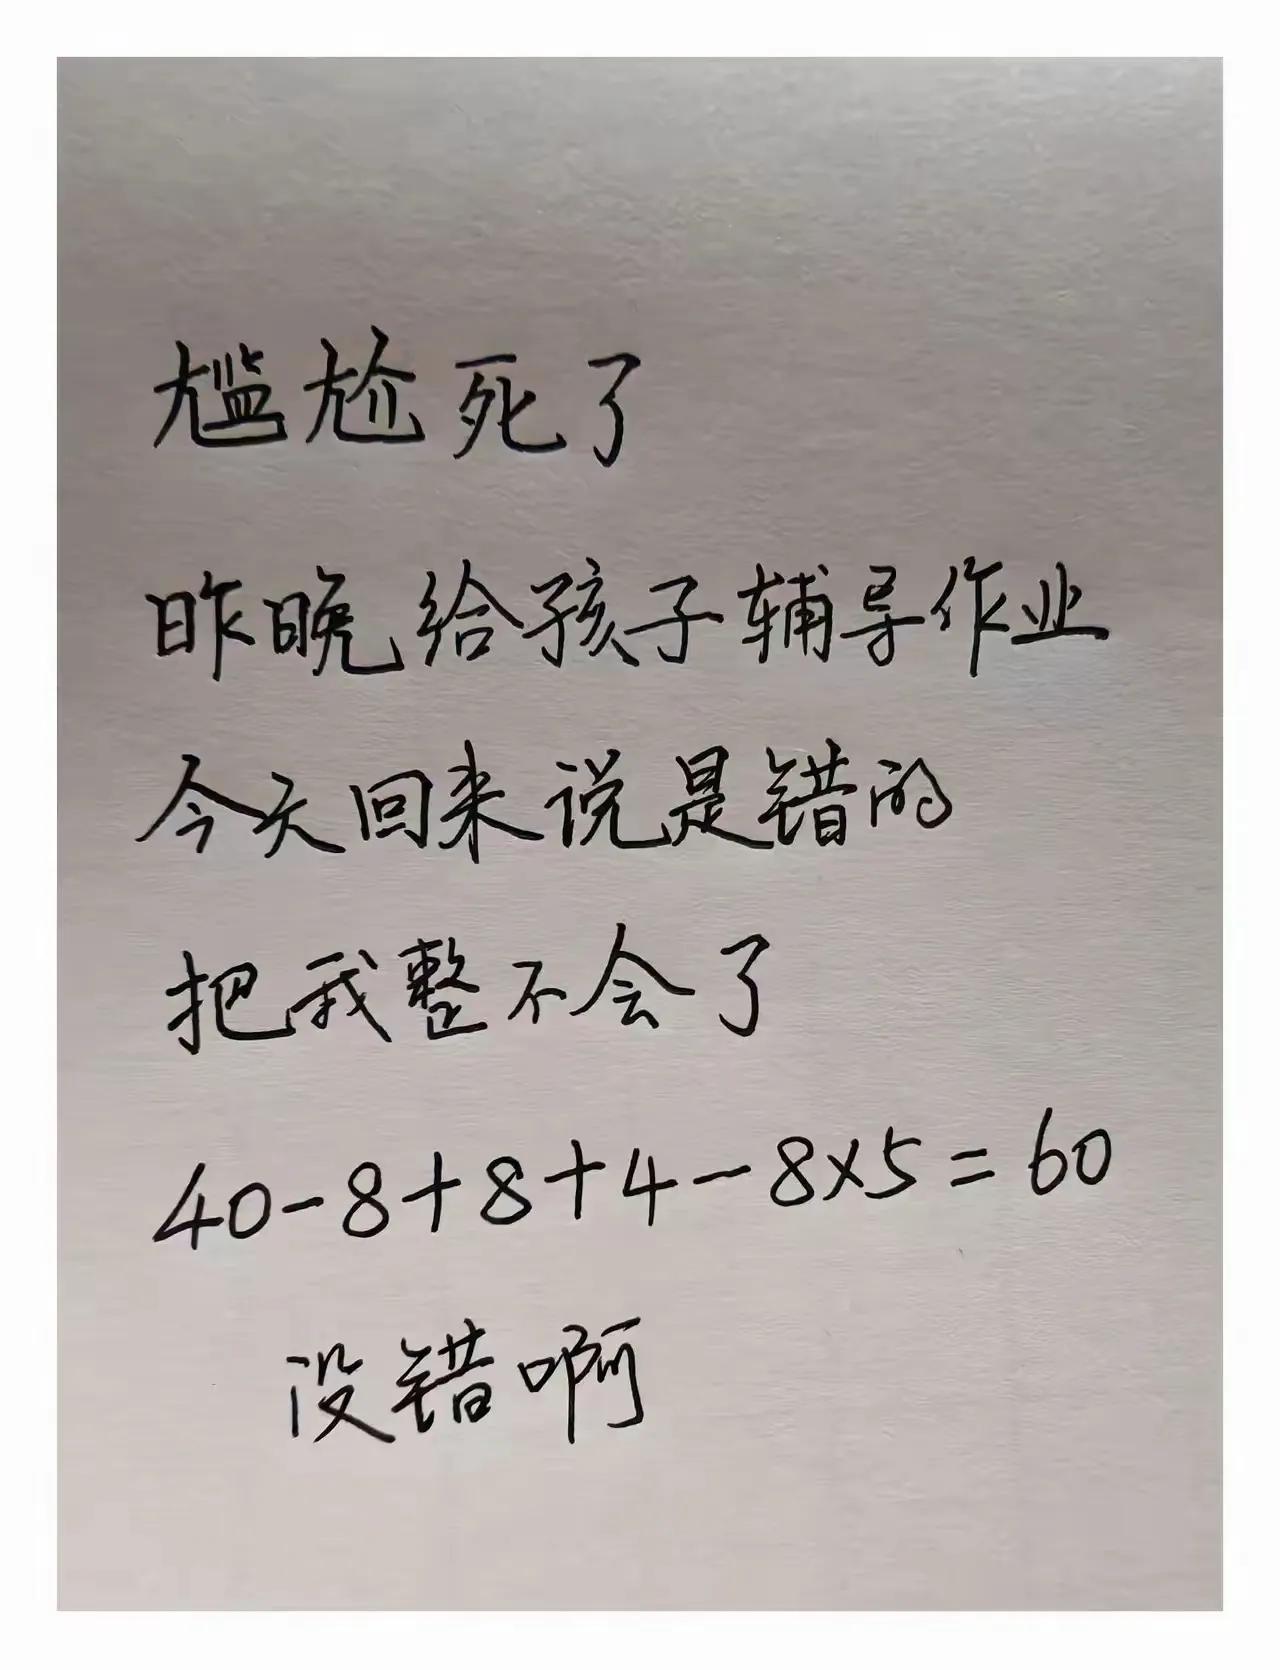 尴尬死了
昨晚给孩子辅导作业
今天回来说是错的
把我整不会了
40-8+8+4-8×5=60
没错啊